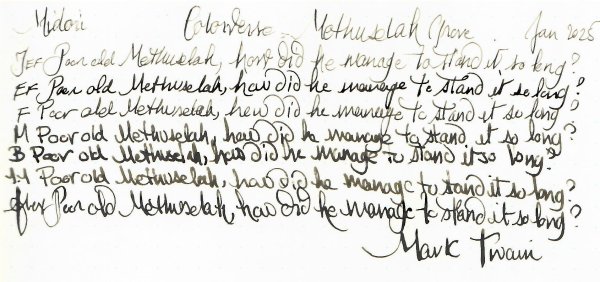 Midori Colorverse Methuselah Grove Jan 2025
JEF Poor old Methuselah, how did he manage to stand it so long?
EF Poor old Methuselah, how did he manage to stand it so long?
F Poor old Methuselah, how did he manage to stand it so long?
M Poor old Methuselah, how did he manage to stand it so long?
B Poor old Methuselah, how did he manage to stand it so long?
1.1 Poor old Methuselah, how did he manage to stand it so long?
Poor old Methuselah, how did he manage to stand it so long?
Mark Twain